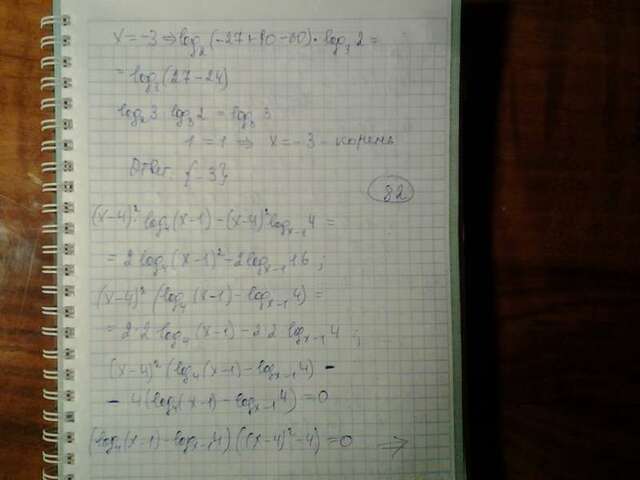 x = -3 ⇒ log₂(-27+90-60)·log₃2 =
= log₃(27-24)
log₂3 log₃2 = log₃3
1 = 1 ⇒ x = -3 - корень
Ответ. {-3}
82
(x-4)² log₄(x-1) - (x-4)² logₓ₋₁4 =
= 2 log₄(x-1)² - 2 logₓ₋₁16;
(x-4)² (log₄(x-1) - logₓ₋₁4) =
= 2·2 log₄(x-1) - 2·2 logₓ₋₁4;
(x-4)² (log₄(x-1) - logₓ₋₁4) -
- 4(log₄(x-1) - logₓ₋₁4) = 0
(log₄(x-1) - logₓ₋₁4)((x-4)² - 4) = 0 →